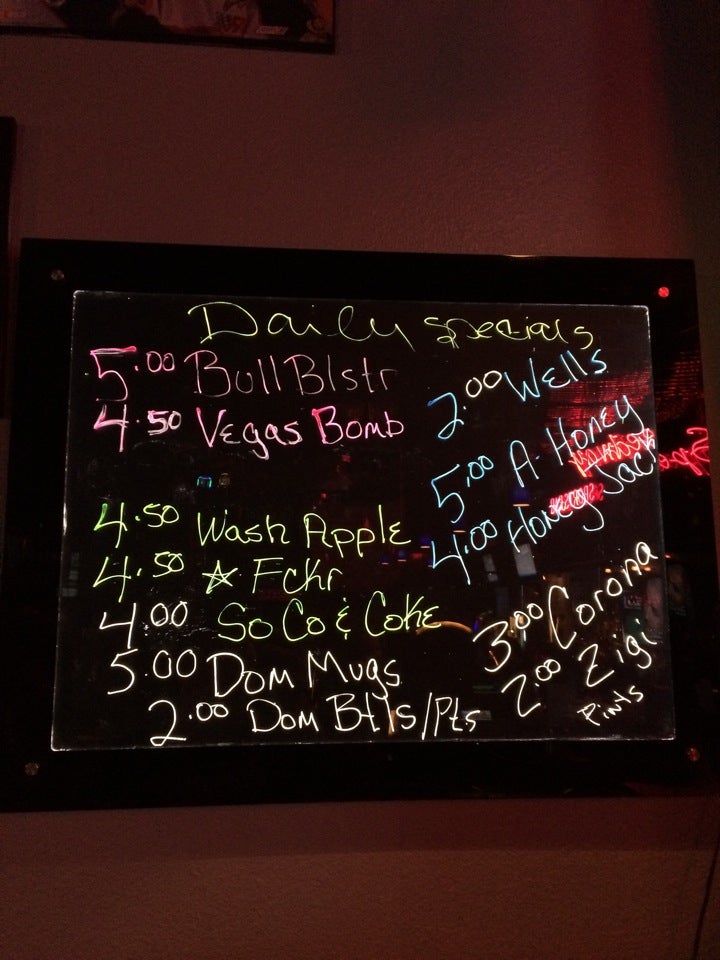 Daily specials
5.00 Bull Blstr
4.50 Vegas Bomb
4.50 Wash Apple
4.50 ☆ Fckr
4.00 SoCo & Coke
5.00 Dom Mugs
2.00 Dom Btls/Pts
2.00 Wells
5.00 A-Honey
4.00 Honey Jack
3.00 Corona
2.00 Zigi
Pints